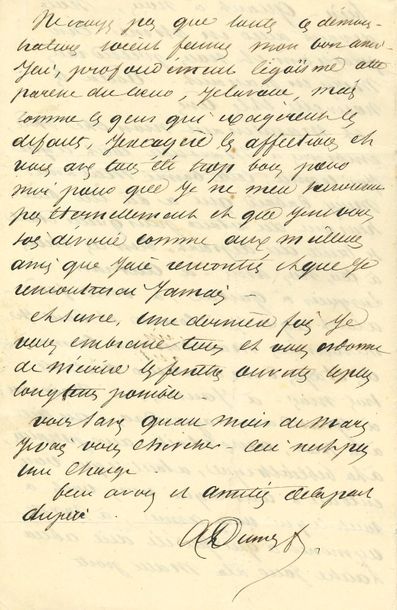 Ne croyez pas que toutes ces démons-
trations soient feintes mon bon ami.
J'ai, profondément l'égoïsme
mais
comme les gens qui exagèrent les
défauts, j'exagère les affections et
vous avez tous été trop bons pour
moi pour que je ne m'en souvienne
pas éternellement et que je ne vous
sois dévoué comme aux meilleurs
amis que j'aie rencontrés et que je
rencontrerai jamais -
une dernière fois je
vous embrasse tous et vous ordonne
de les fenêtres ouvertes le plus
longtemps possible.
Vous savez qu'au mois de Mars
je vais vous chercher - Ceci n'est pas
une charge
bien à vous et amitiés de la part
du père.
A Dumas f.